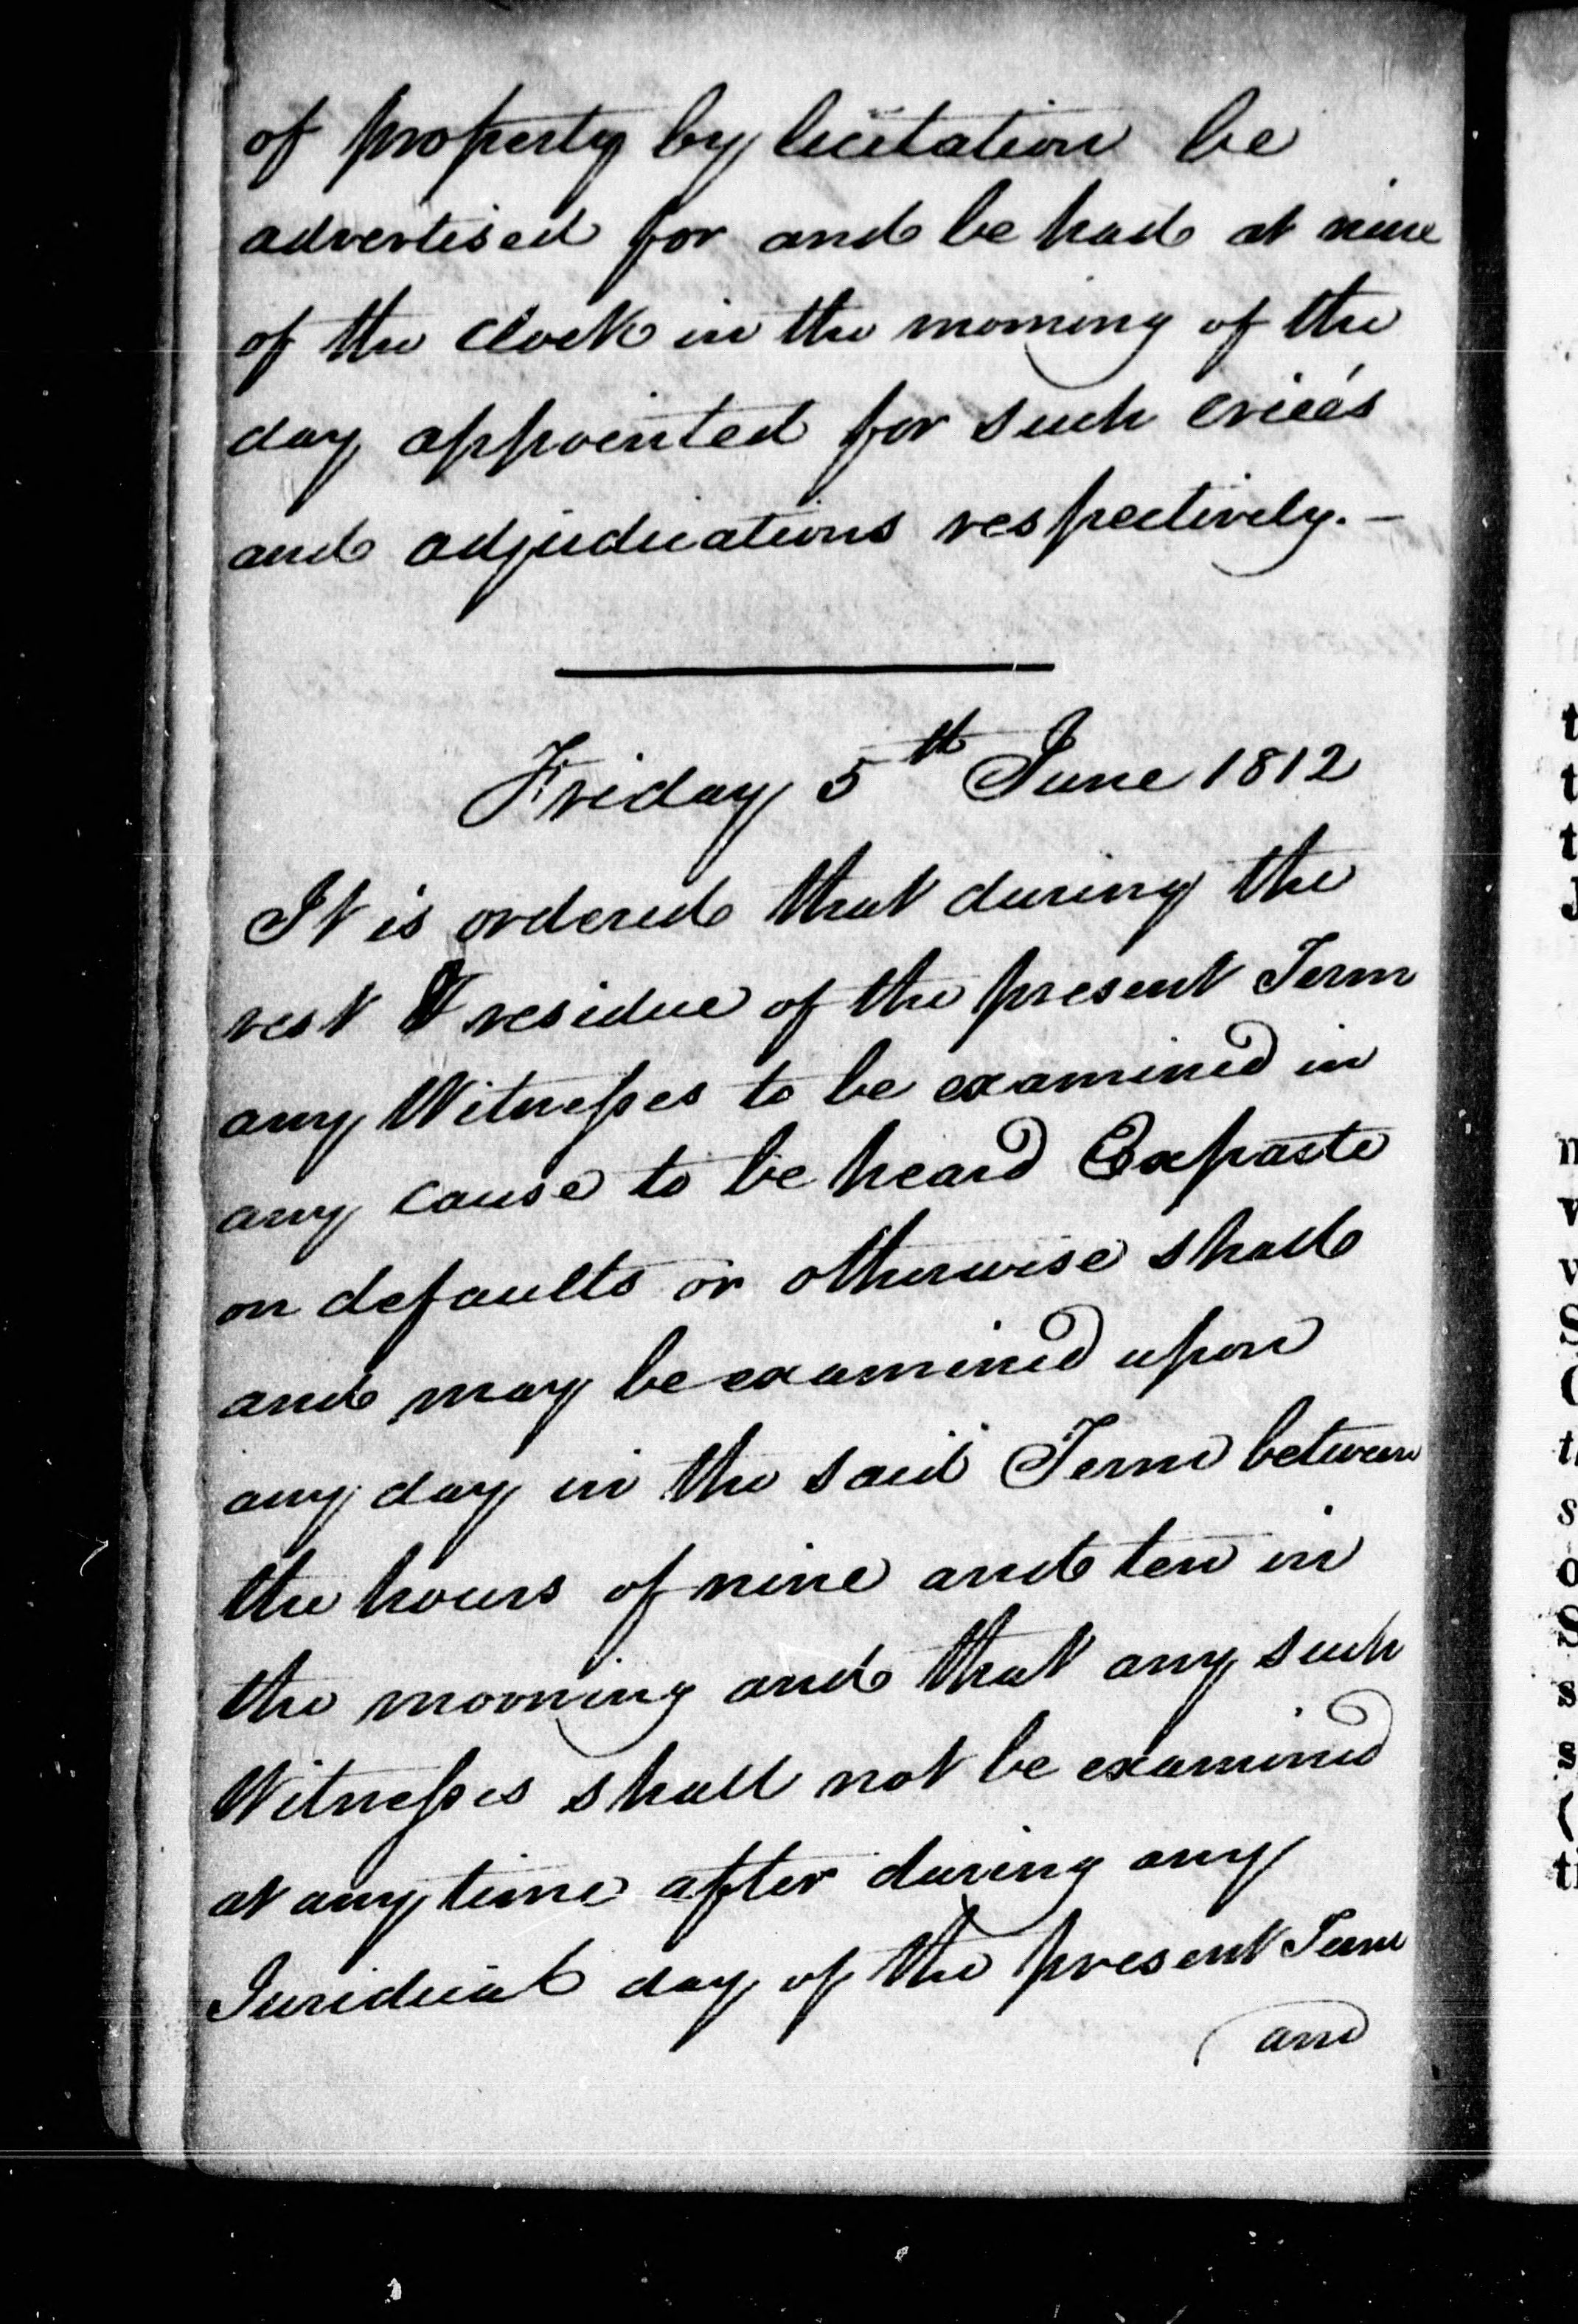 of property by licitation be
advertised for and be had at nine
of the clock in the morning of the
day appointed for such criées
and adjudications respectively. –
Friday 5th June 1812
It is ordered that during the
rest & residue of the present Term
any Witnesses to be examined in
any cause to be heard Exparte
on defaults or otherwise shall
and may be examined upon
any day in the said Term between
the hours of nine and ten in
the morning and that any such
Witnesses shall not be examined
at any time after during any
Juridical day of the present Term
and